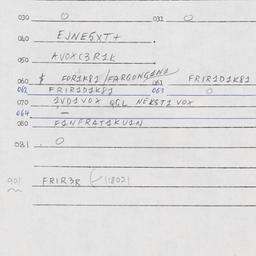 030 0 031 0
040 EJNE5XT+
050 AVOXC3R1K
060 $ FOR1K81/FARGONGAN1 061 FRIR1D1K81
062 FRIR1D1K81 063 0
070 1VD1VOX QGL NEKST1 VOX
064 —
080 F1NFRAT1KU1N
081 . 0
901 FRIR3R (1802)